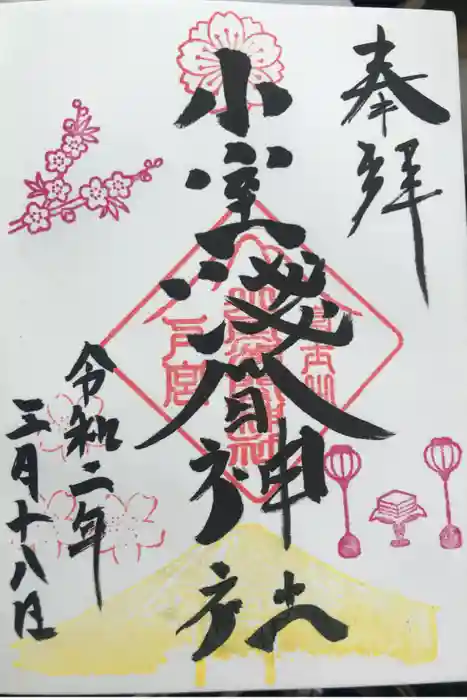 奉拝
小室淺間神社
令和二年
三月十八日